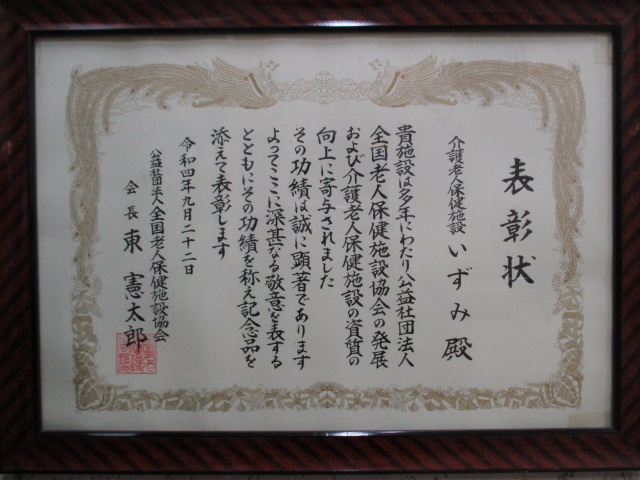 表彰状
介護老人保健施設 いずみ殿
貴施設は多年にわたり公益社団法人
全国老人保健施設協会の発展
および介護老人保健施設の資質の
向上に寄与されました
その功績は誠に顕著であります
よってここに深甚なる敬意を表する
とともにその功績を称え記念品を
添えて表彰します
令和四年九月二十二日
公益社団法人全国老人保健施設協会
会長 東憲太郎